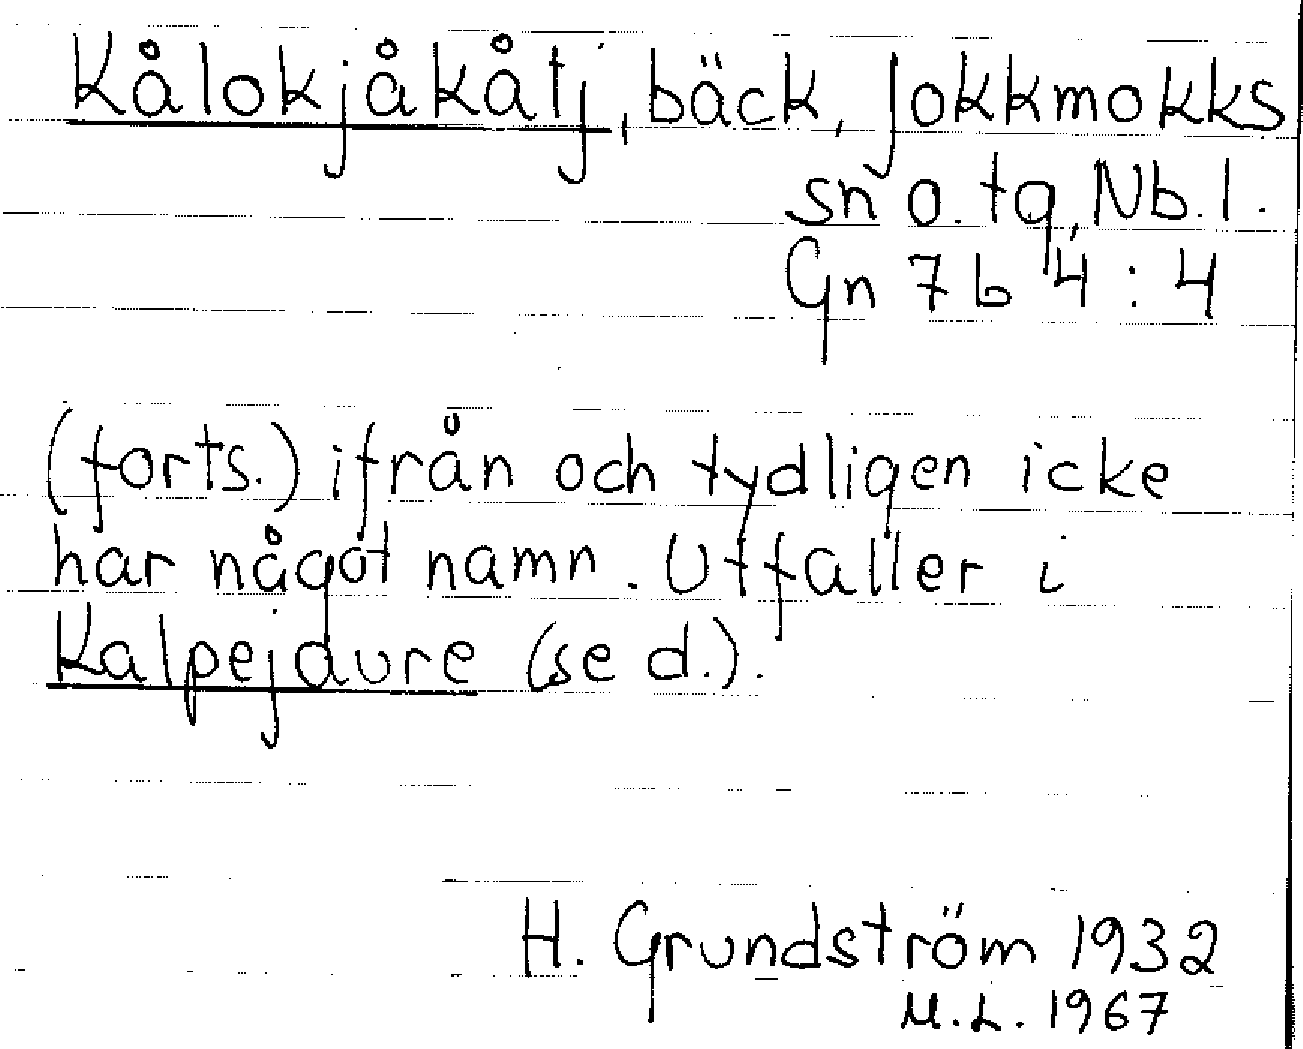 Kålokjåkåtj, bäck, Jokkmokks
sn o. tg, Nb. l.
Gn 7 b 4 : 4
(forts.) ifrån och tydligen icke
har något namn. Utfaller i
Kalpejaure (se d.).
H. Grundström 1932
M.L. 1967